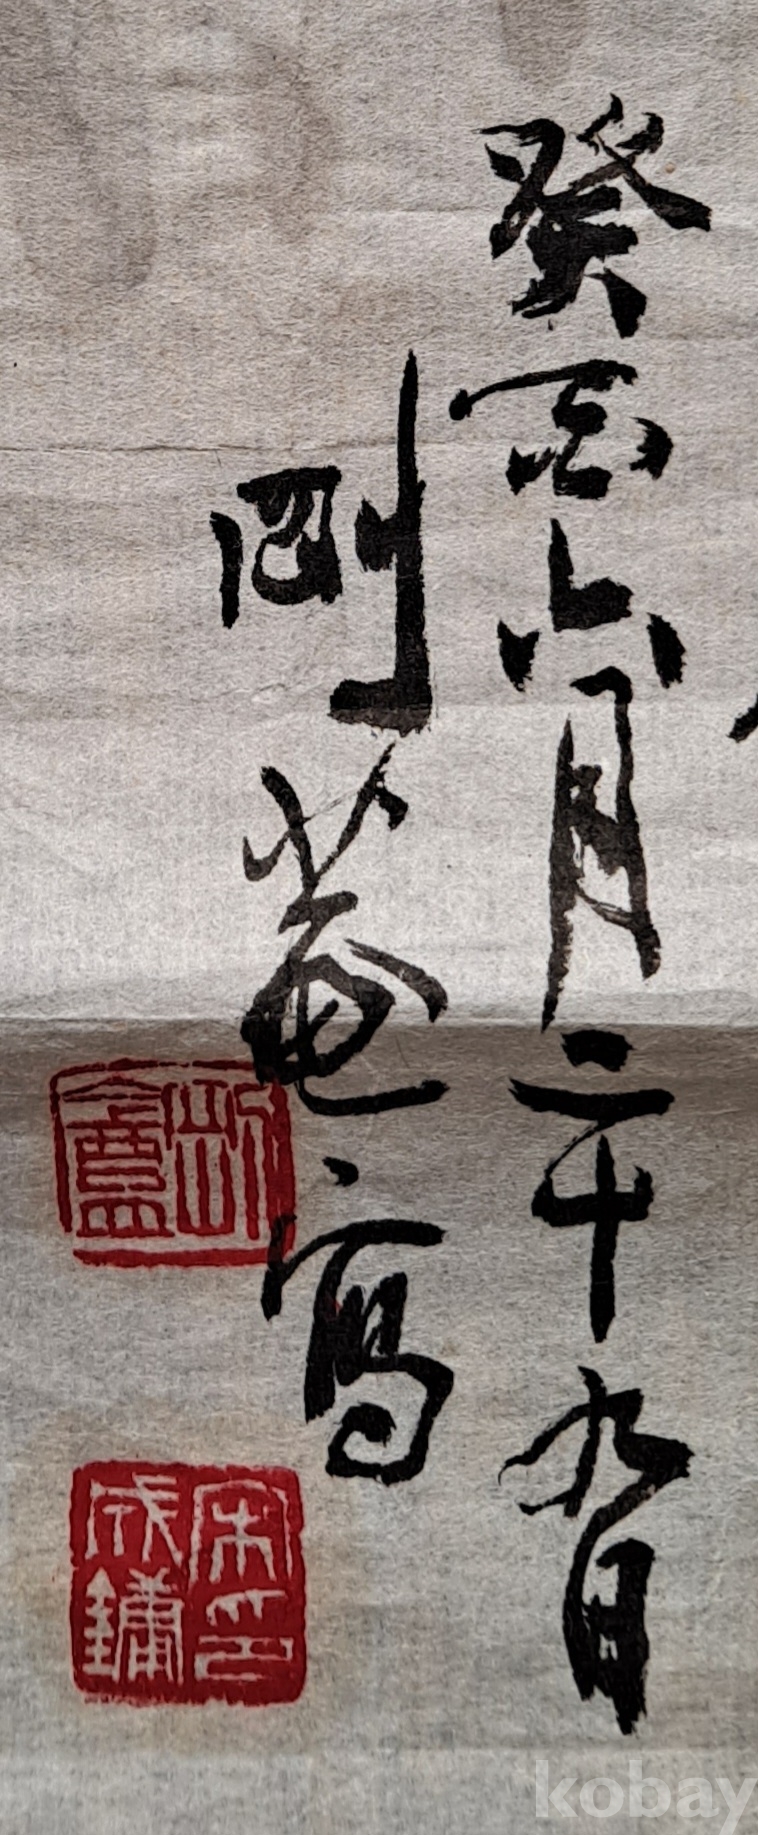 癸 六月二十九日
剛菴寫
剛盦
宋印
成鏞
kobay